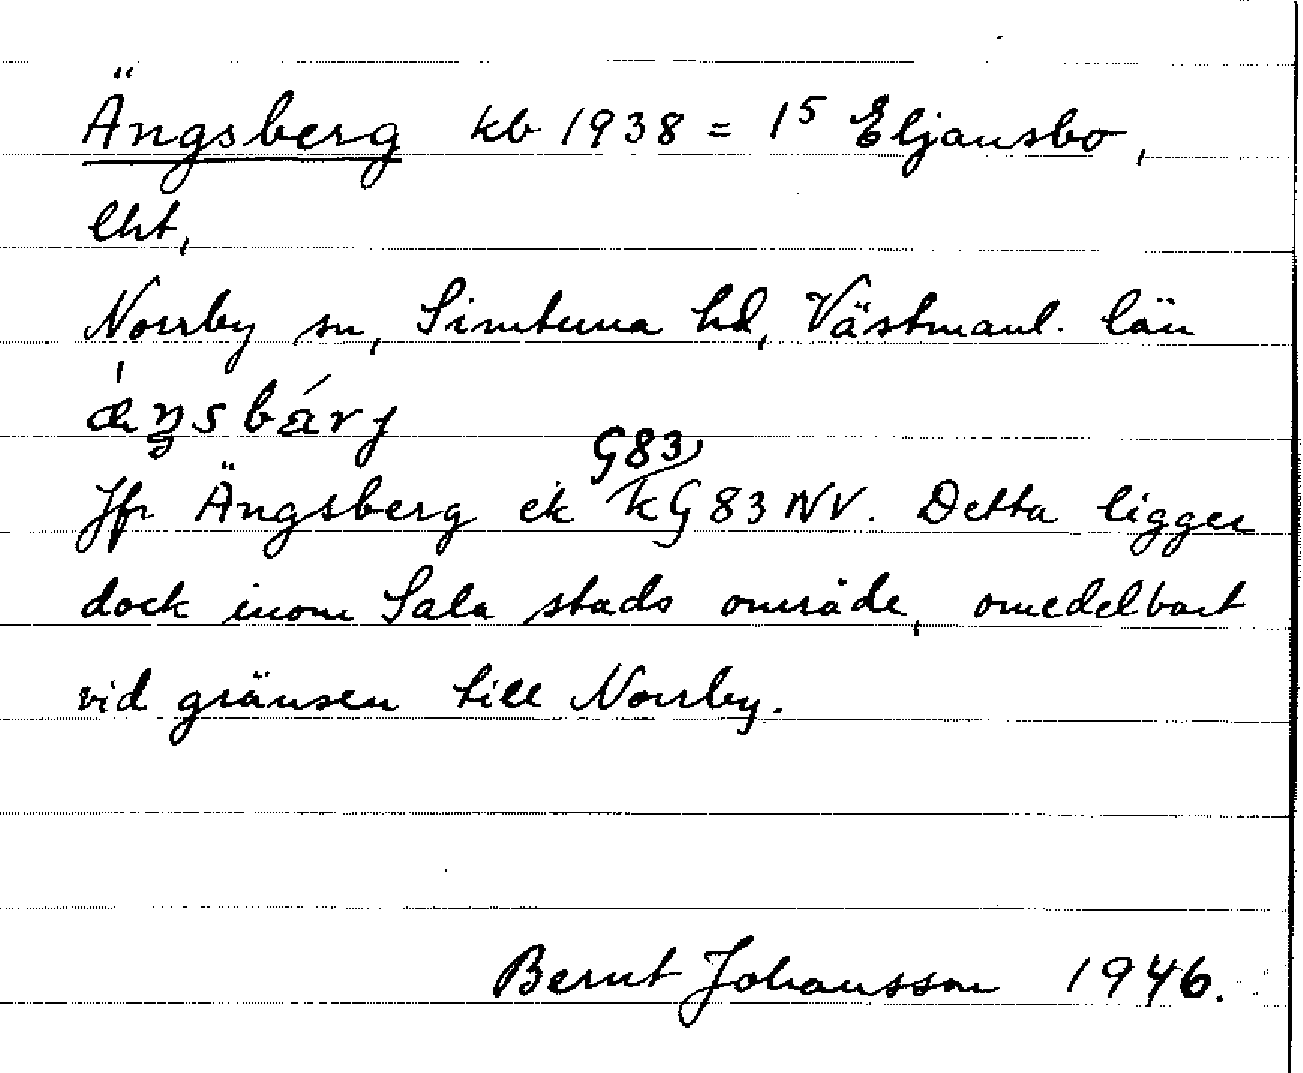 Ängsberg kb 1938 = 1⁵ Eljansbo,
lht,
Norrby sn, Simtuna hd, Västmanl. län
ǽŋsbárj
G83
Jfr Ängsberg ek kG83NV. Detta ligger
dock inom Sala stads område, omedelbart
vid gränsen till Norrby.
Bernt Johansson 1946.